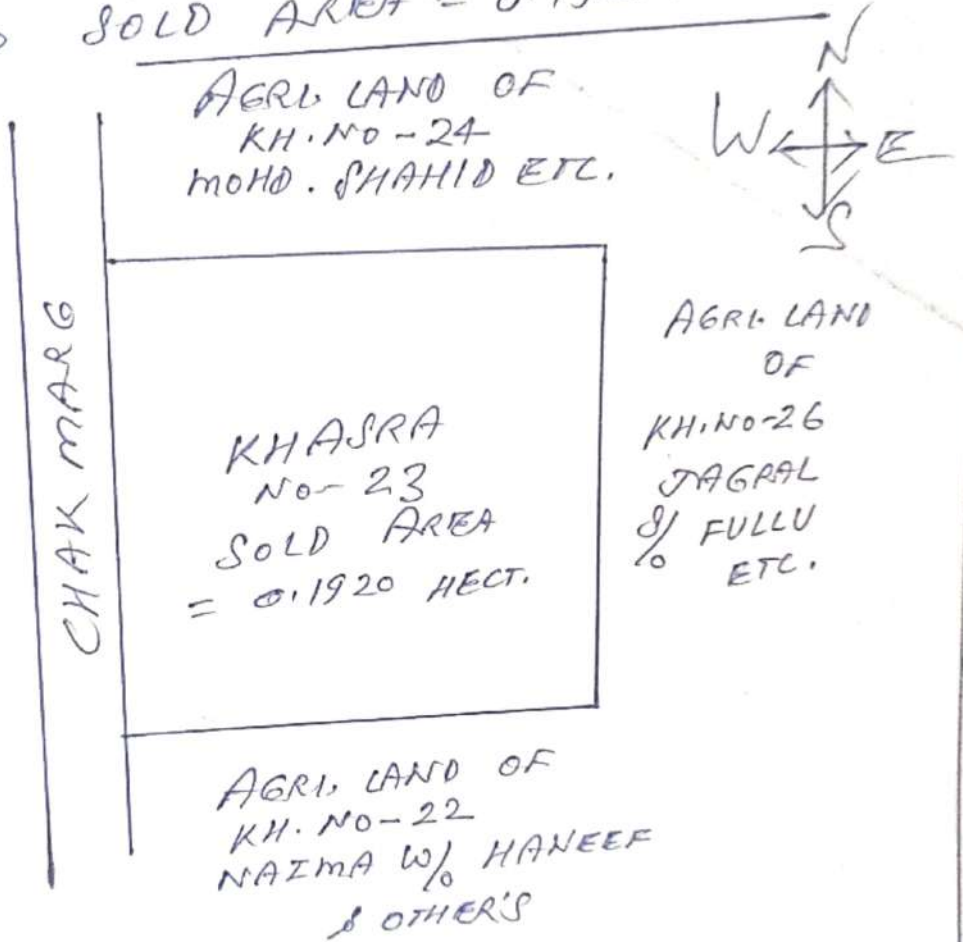 SOLD AREA =
AGRI. LAND OF
KH. NO - 24
MOHD. SHAHID ETC.
N
W E
S
CHAK MARG
KHASRA
NO - 23
SOLD AREA
= 0.1920 HECT.
AGRI. LAND
OF
KH. NO - 26
JAGPAL
S/o FULLU
ETC.
AGRI. LAND OF
KH. NO - 22
NAIMA W/o HANEEF
& OTHER'S